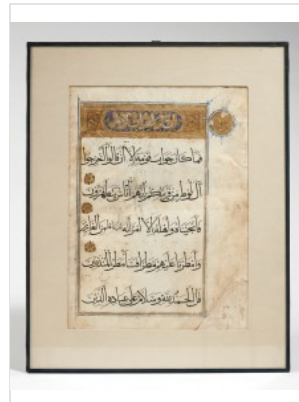 فما كان جواب قومه إلا أن قالوا أخرجوا
آل لوط من قريتكم إنهم أناس يتطهرون
فأنجيناه وأهله إلا امرأته قدرناها من الغابرين
وأمطرنا عليهم مطرا فساء مطر المنذرين
قل الحمد لله وسلام على عباده الذين